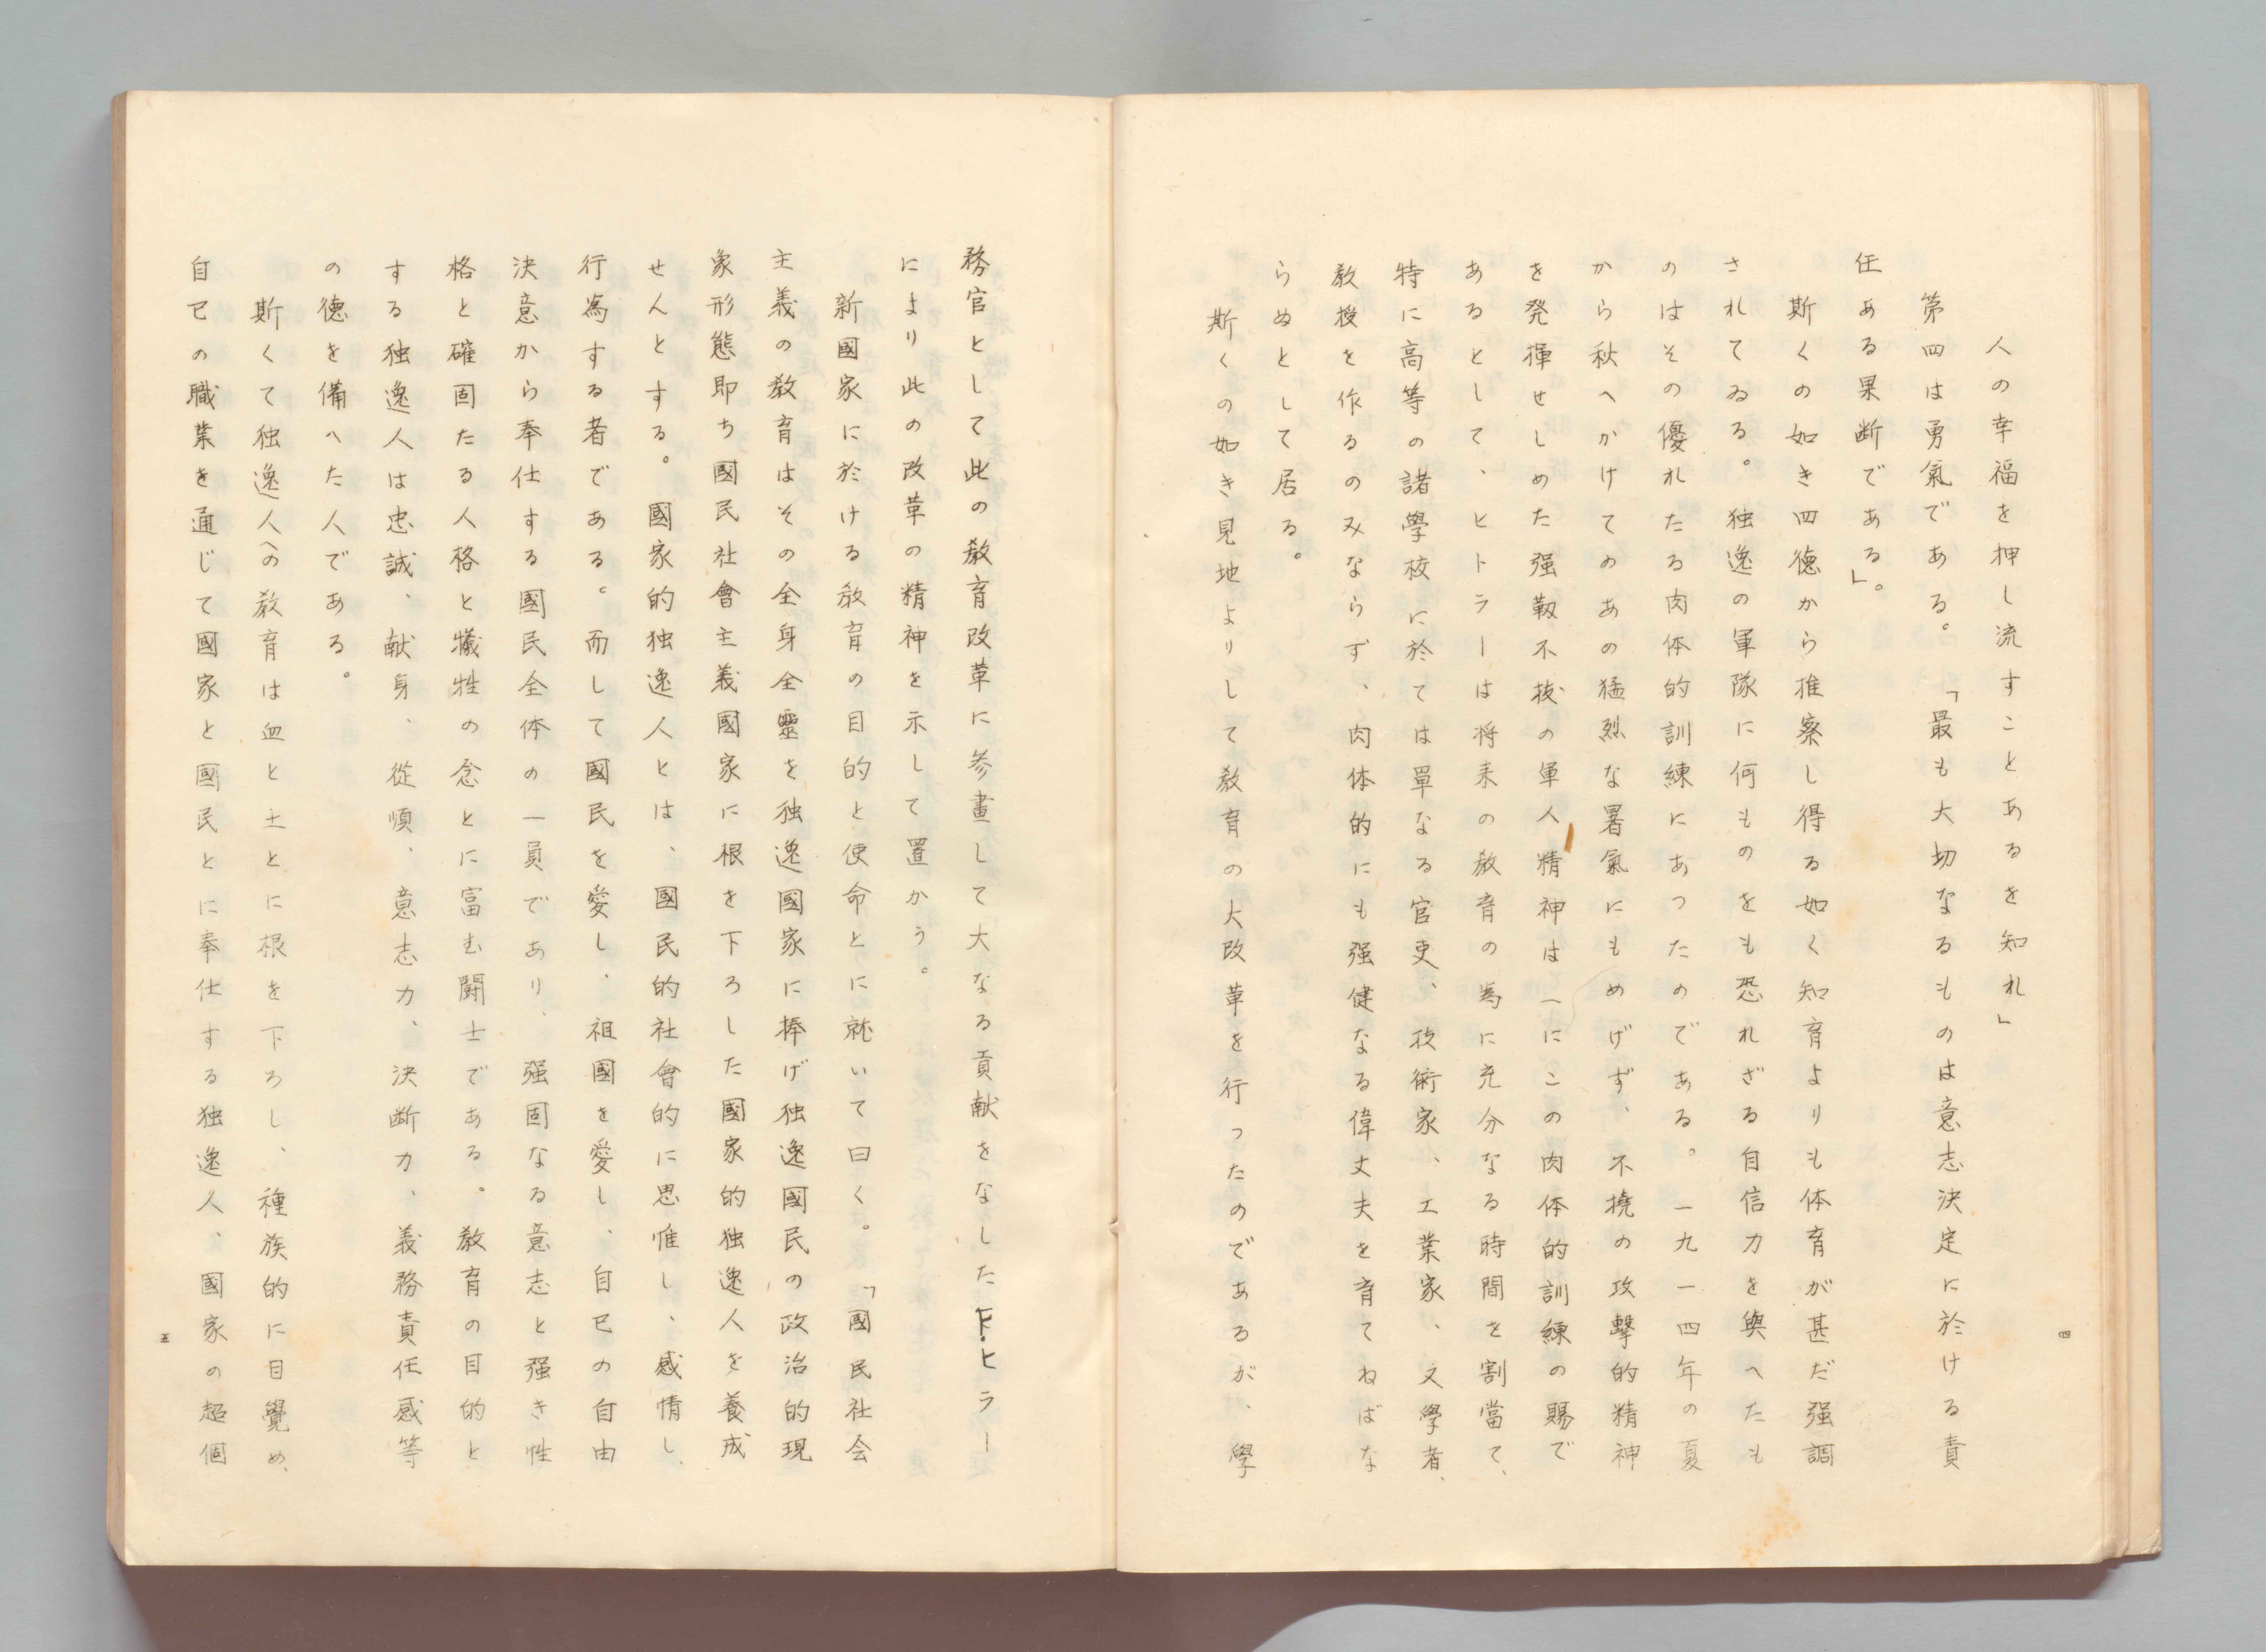 人の幸福を押し流すことあるを知れ」
第四は勇氣である。「最も大切なるものは意志決定に於ける責
任ある果断である」。
斯くの如き四徳から推察し得る如く知育よりも体育が甚だ强調
されてゐる。独逸の軍隊に何ものをも恐れざる自信力を與へたも
のはその優れたる肉体的訓練にあつたのである。一九一四年の夏
から秋へかけてのあの猛烈な暑氣にもめげず、不撓の攻擊的精神
を発揮せしめた强靱不抜の軍人精神は一にこの肉体的訓練の賜で
あるとして、ヒトラーは将来の教育の為に充分なる時間を割當て、
特に高等の諸學校に於ては單なる官吏、技術家、工業家、文學者、
教授を作るのみならず、肉体的にも强健なる偉丈夫を育てねばな
らぬとして居る。
斯くの如き見地よりして教育の大改革を行つたのであるが、學
四
務官として此の教育改革に参畫して大なる貢献をなしたF.ヒラー
により此の改革の精神を示して置かう。
新國家に於ける教育の目的と使命とに就いて曰く。「國民社会
主義の教育はその全身全靈を独逸國家に捧げ独逸國民の政治的現
象形態即ち國民社會主義國家に根を下ろした國家的独逸人を養成
せんとする。國家的独逸人とは、國民的社會的に思惟し、感情し、
行為する者である。而して國民を愛し、祖國を愛し、自己の自由
決意から奉仕する國民全体の一員であり、强固なる意志と强き性
格と確固たる人格と犠牲の念とに富む闘士である。教育の目的と
する独逸人は忠誠、献身、從順、意志力、決断力、義務責任感等
の徳を備へた人である。
斯くて独逸人への教育は血と土とに根を下ろし、種族的に目覺め、
自己の職業を通じて國家と國民とに奉仕する独逸人、國家の超個
五